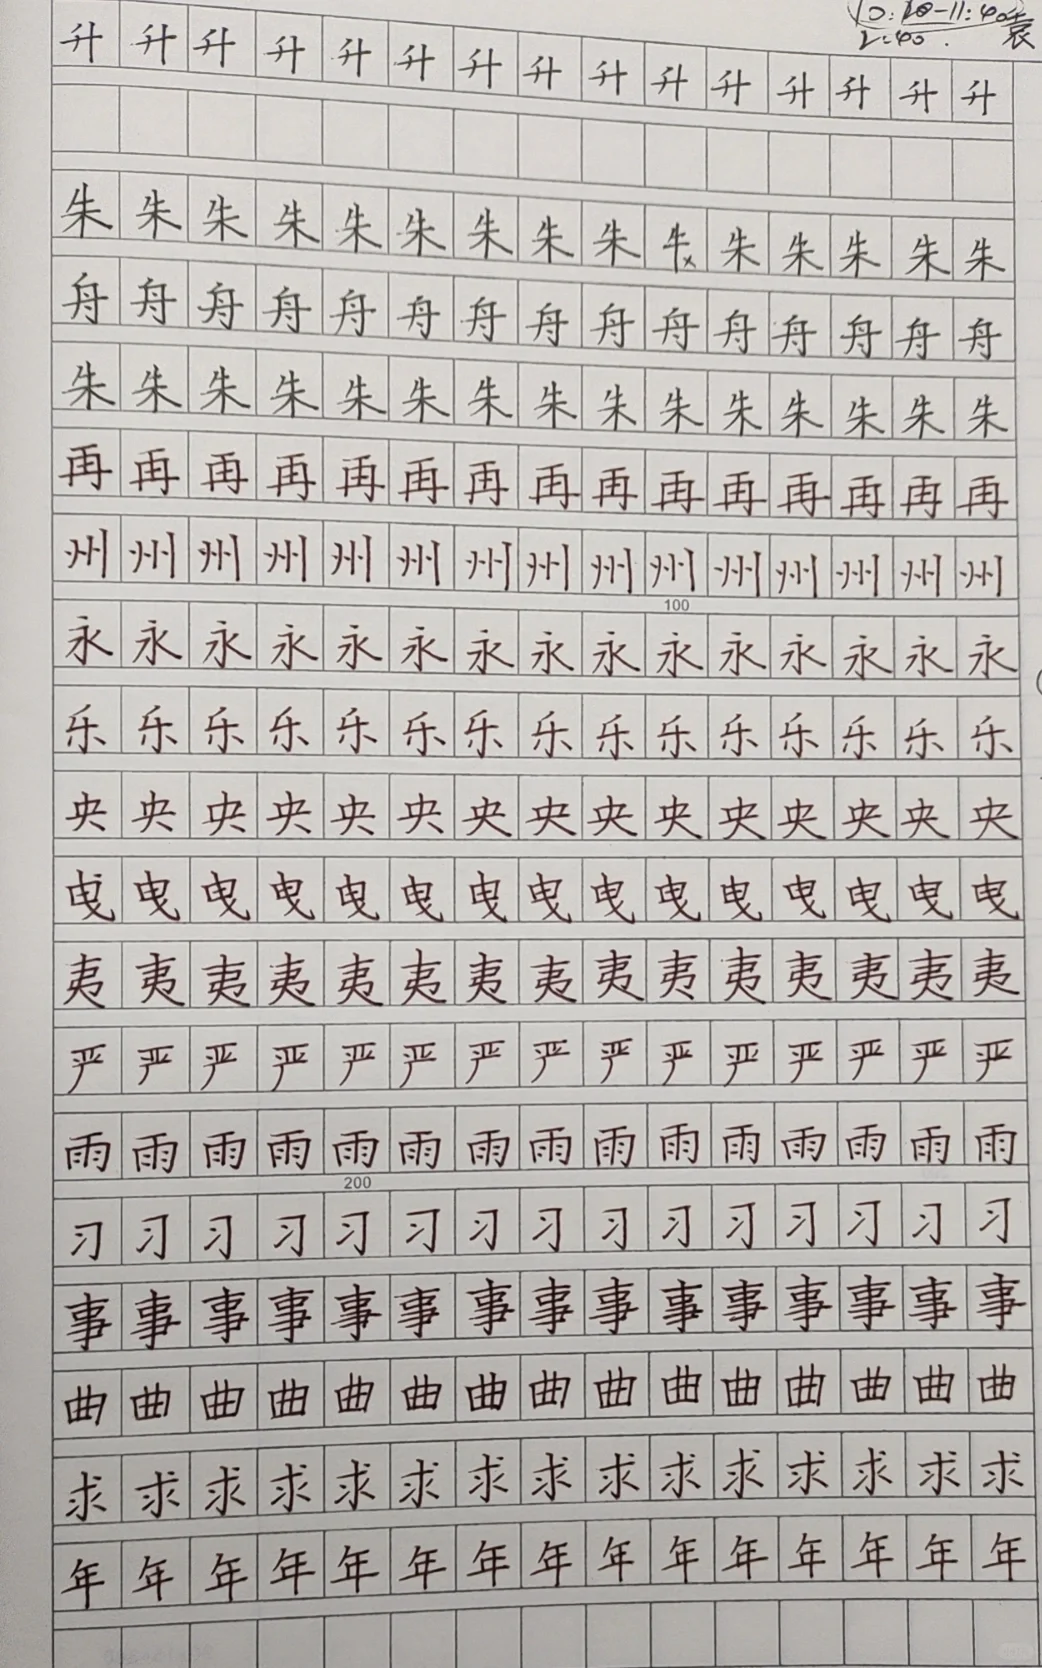 10:20-11:40
2:40.
升升升升升升升升升升升升升升升
朱朱朱朱朱朱朱朱朱朱朱朱朱朱
舟舟舟舟舟舟舟舟舟舟舟舟舟舟舟
朱朱朱朱朱朱朱朱朱朱朱朱朱朱朱
再再再再再再再再再再再再再再再
州州州州州州州州州州州州州州州
100
永永永永永永永永永永永永永永永
乐乐乐乐乐乐乐乐乐乐乐乐乐乐乐
央央央央央央央央央央央央央央央
曳曳曳曳曳曳曳曳曳曳曳曳曳曳曳
夷夷夷夷夷夷夷夷夷夷夷夷夷夷夷
严严严严严严严严严严严严严严严
雨雨雨雨雨雨雨雨雨雨雨雨雨雨雨
200
习习习习习习习习习习习习习习习
事事事事事事事事事事事事事事事
曲曲曲曲曲曲曲曲曲曲曲曲曲曲曲
求求求求求求求求求求求求求求求
年年年年年年年年年年年年年年年